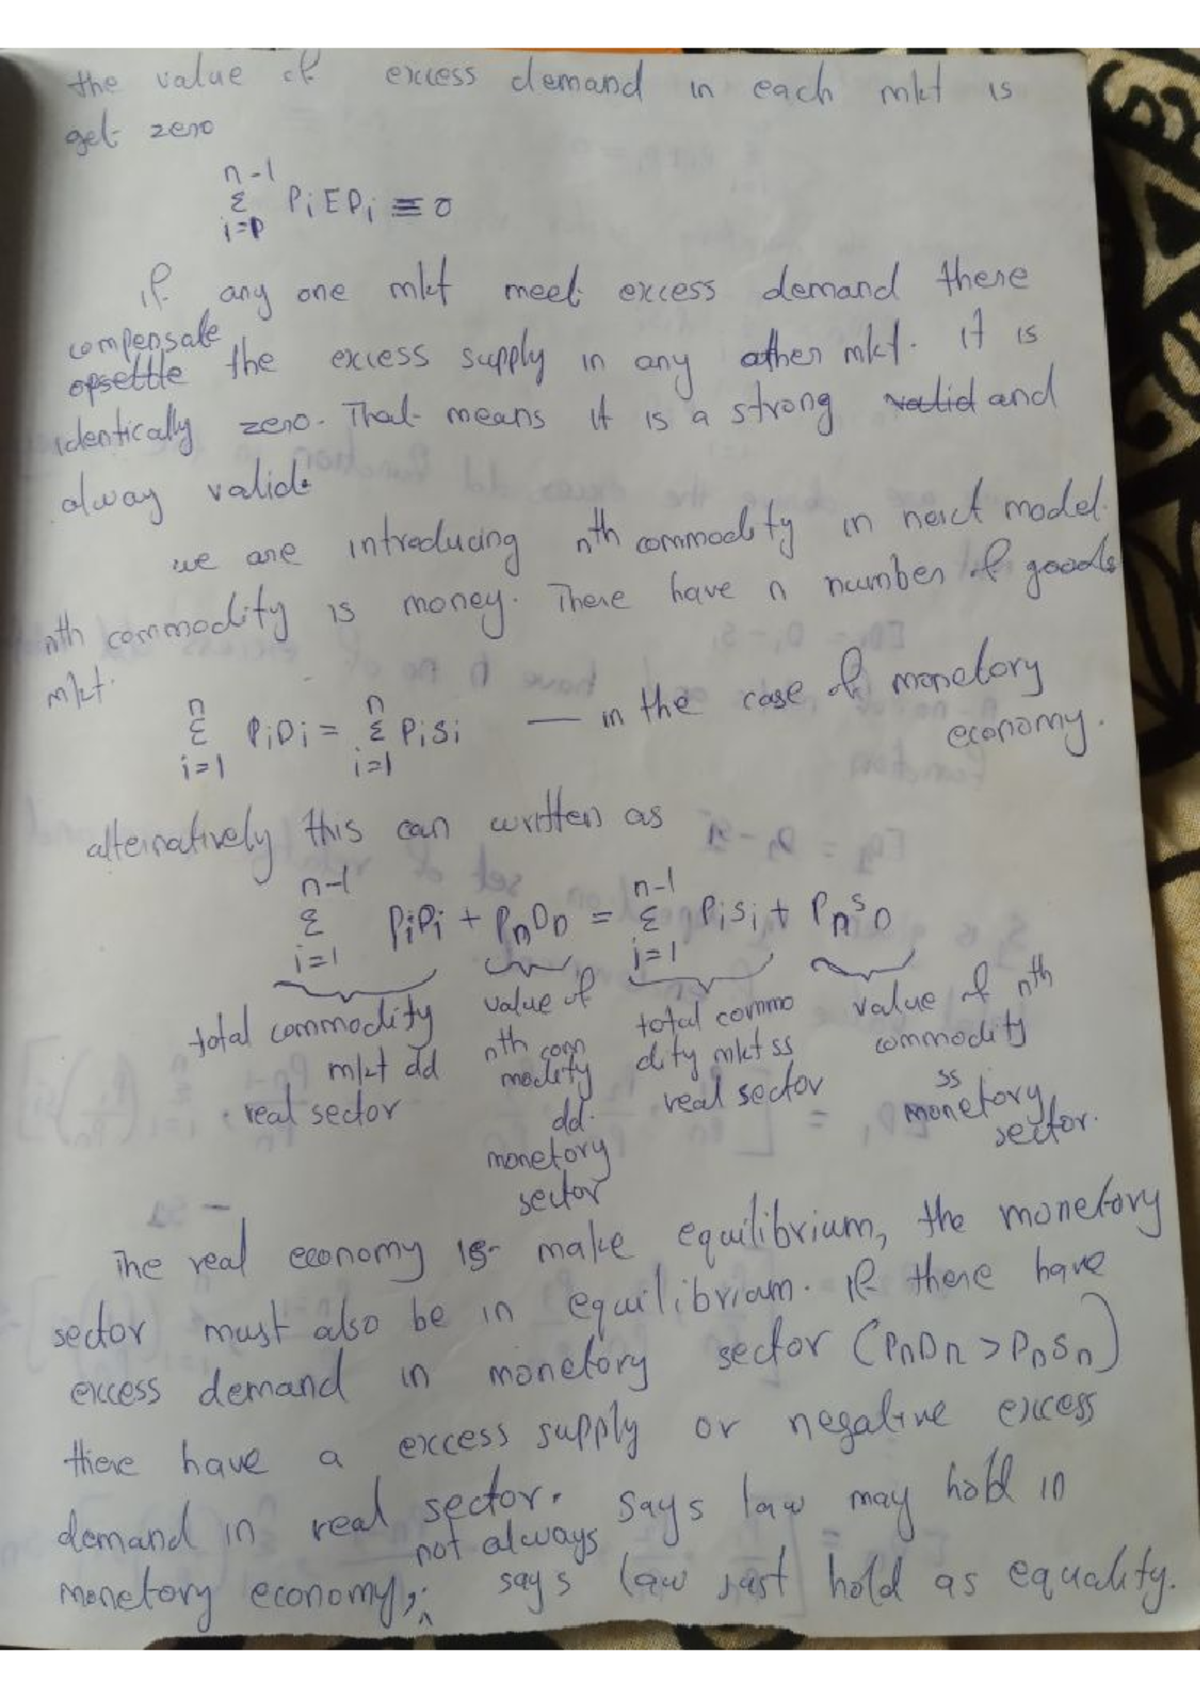 the value of excess demand in each mkt is
get zero
n-1
Σ Pi EDi ≡ 0
i=1
if any one mkt meet excess demand there
compensate
opsettle the excess supply in any other mkt. it is
identically zero. That means it is a strong valid and
alway valid.
we are introducing nth commodity in next model.
nth commodity is money. There have n number of goods
mkt.
n n
Σ PiDi = Σ PiSi — in the case of monetory
i=1 i=1 economy.
alternatively this can written as
n-1 n-1
Σ PiDi + PnDn = Σ PiSi + PnSn
i=1 i=1
total commodity value of total commo value of nth
mkt dd nth com dity mkt ss commodity
real sector modity real sector ss
dd. monetory
monetory sector.
sector
The real economy is make equilibrium, the monetory
sector must also be in equilibrium. If there have
excess demand in monetory sector (PnDn > PnSn)
there have a excess supply or negative excess
demand in real sector. Says law may hold in
not always
monetory economy; says law just hold as equality.